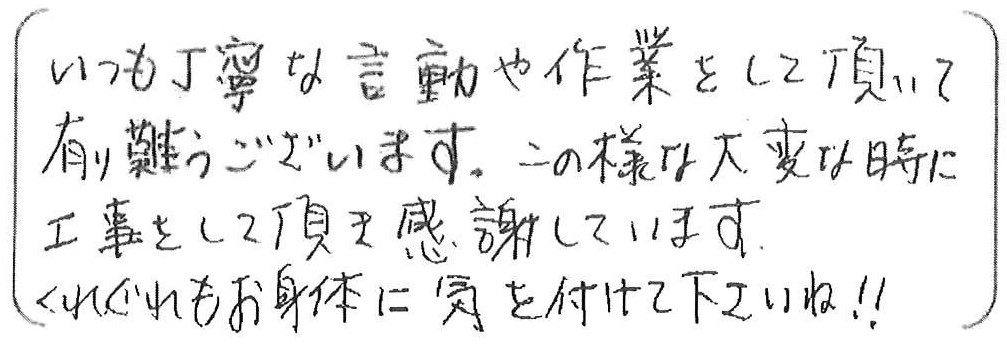 いつも丁寧な言動や作業をして頂いて
有り難うございます。この様な大変な時に
工事をして頂き感謝しています。
くれぐれもお身体に気を付けて下さいね!!